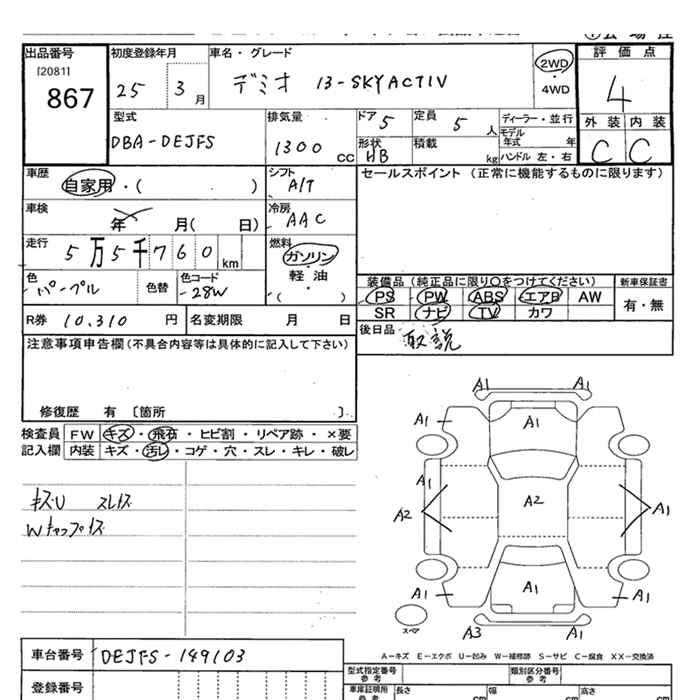 出品番号
[2081]
867
初度登録年月
25 3 月
車名・グレード
デミオ 13-SKYACTIV
2WD
・
4WD
評価点
4
外装 内装
C C
型式
DBA-DEJFS
排気量
1300 cc
ドア 5
形状 HB
定員 5 人
積載 kg
ディーラー・並行
モデル年式 年
ハンドル 左・右
車歴
自家用・( )
シフト
A/T
セールスポイント (正常に機能するものに限ります)
車検
年 月( 日)
冷房
AAC
走行
5万5千760 km
燃料
ガソリン
・
軽・油
( )
色
パープル
色替
色コード
28W
装備品(純正品に限り〇をつけてください)
PS PW ABS エアB AW
SR ナビ TV カワ
新車保証書
有・無
R券 10,310 円
名変期限 月 日
後日品
取説
注意事項申告欄(不具合内容等は具体的に記入して下さい)
修復歴 有 〔箇所 〕
検査員
記入欄
FW キズ・飛石・ヒビ割・リペア跡・×要
内装 キズ・汚レ・コゲ・穴・スレ・キレ・破レ
キズU スレイズ
A1
A1 A1 A1
A1
A2 A2 A1
A1 A1 A1
A3 A1
スペア
A-キズ E-エクボ U-凹み W-補修跡 S-サビ C-腐食 XX-交換済
車台番号 DEJFS-149103
登録番号
型式指定番号
参考
類別区分番号
参考
車庫証明用
参考
長さ cm 幅 cm 高さ cm